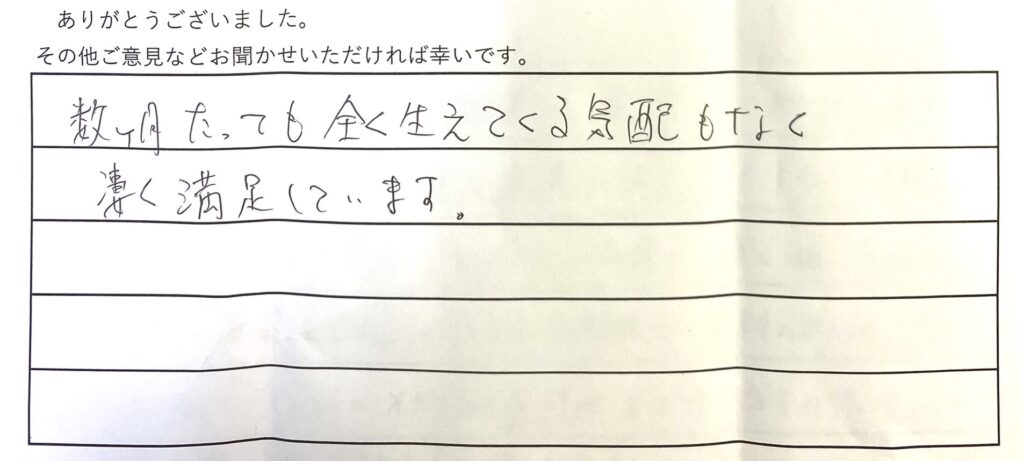 ありがとうございました。
その他ご意見などお聞かせいただければ幸いです。
数ヶ月たっても全く生えてくる気配もなく
凄く満足しています。